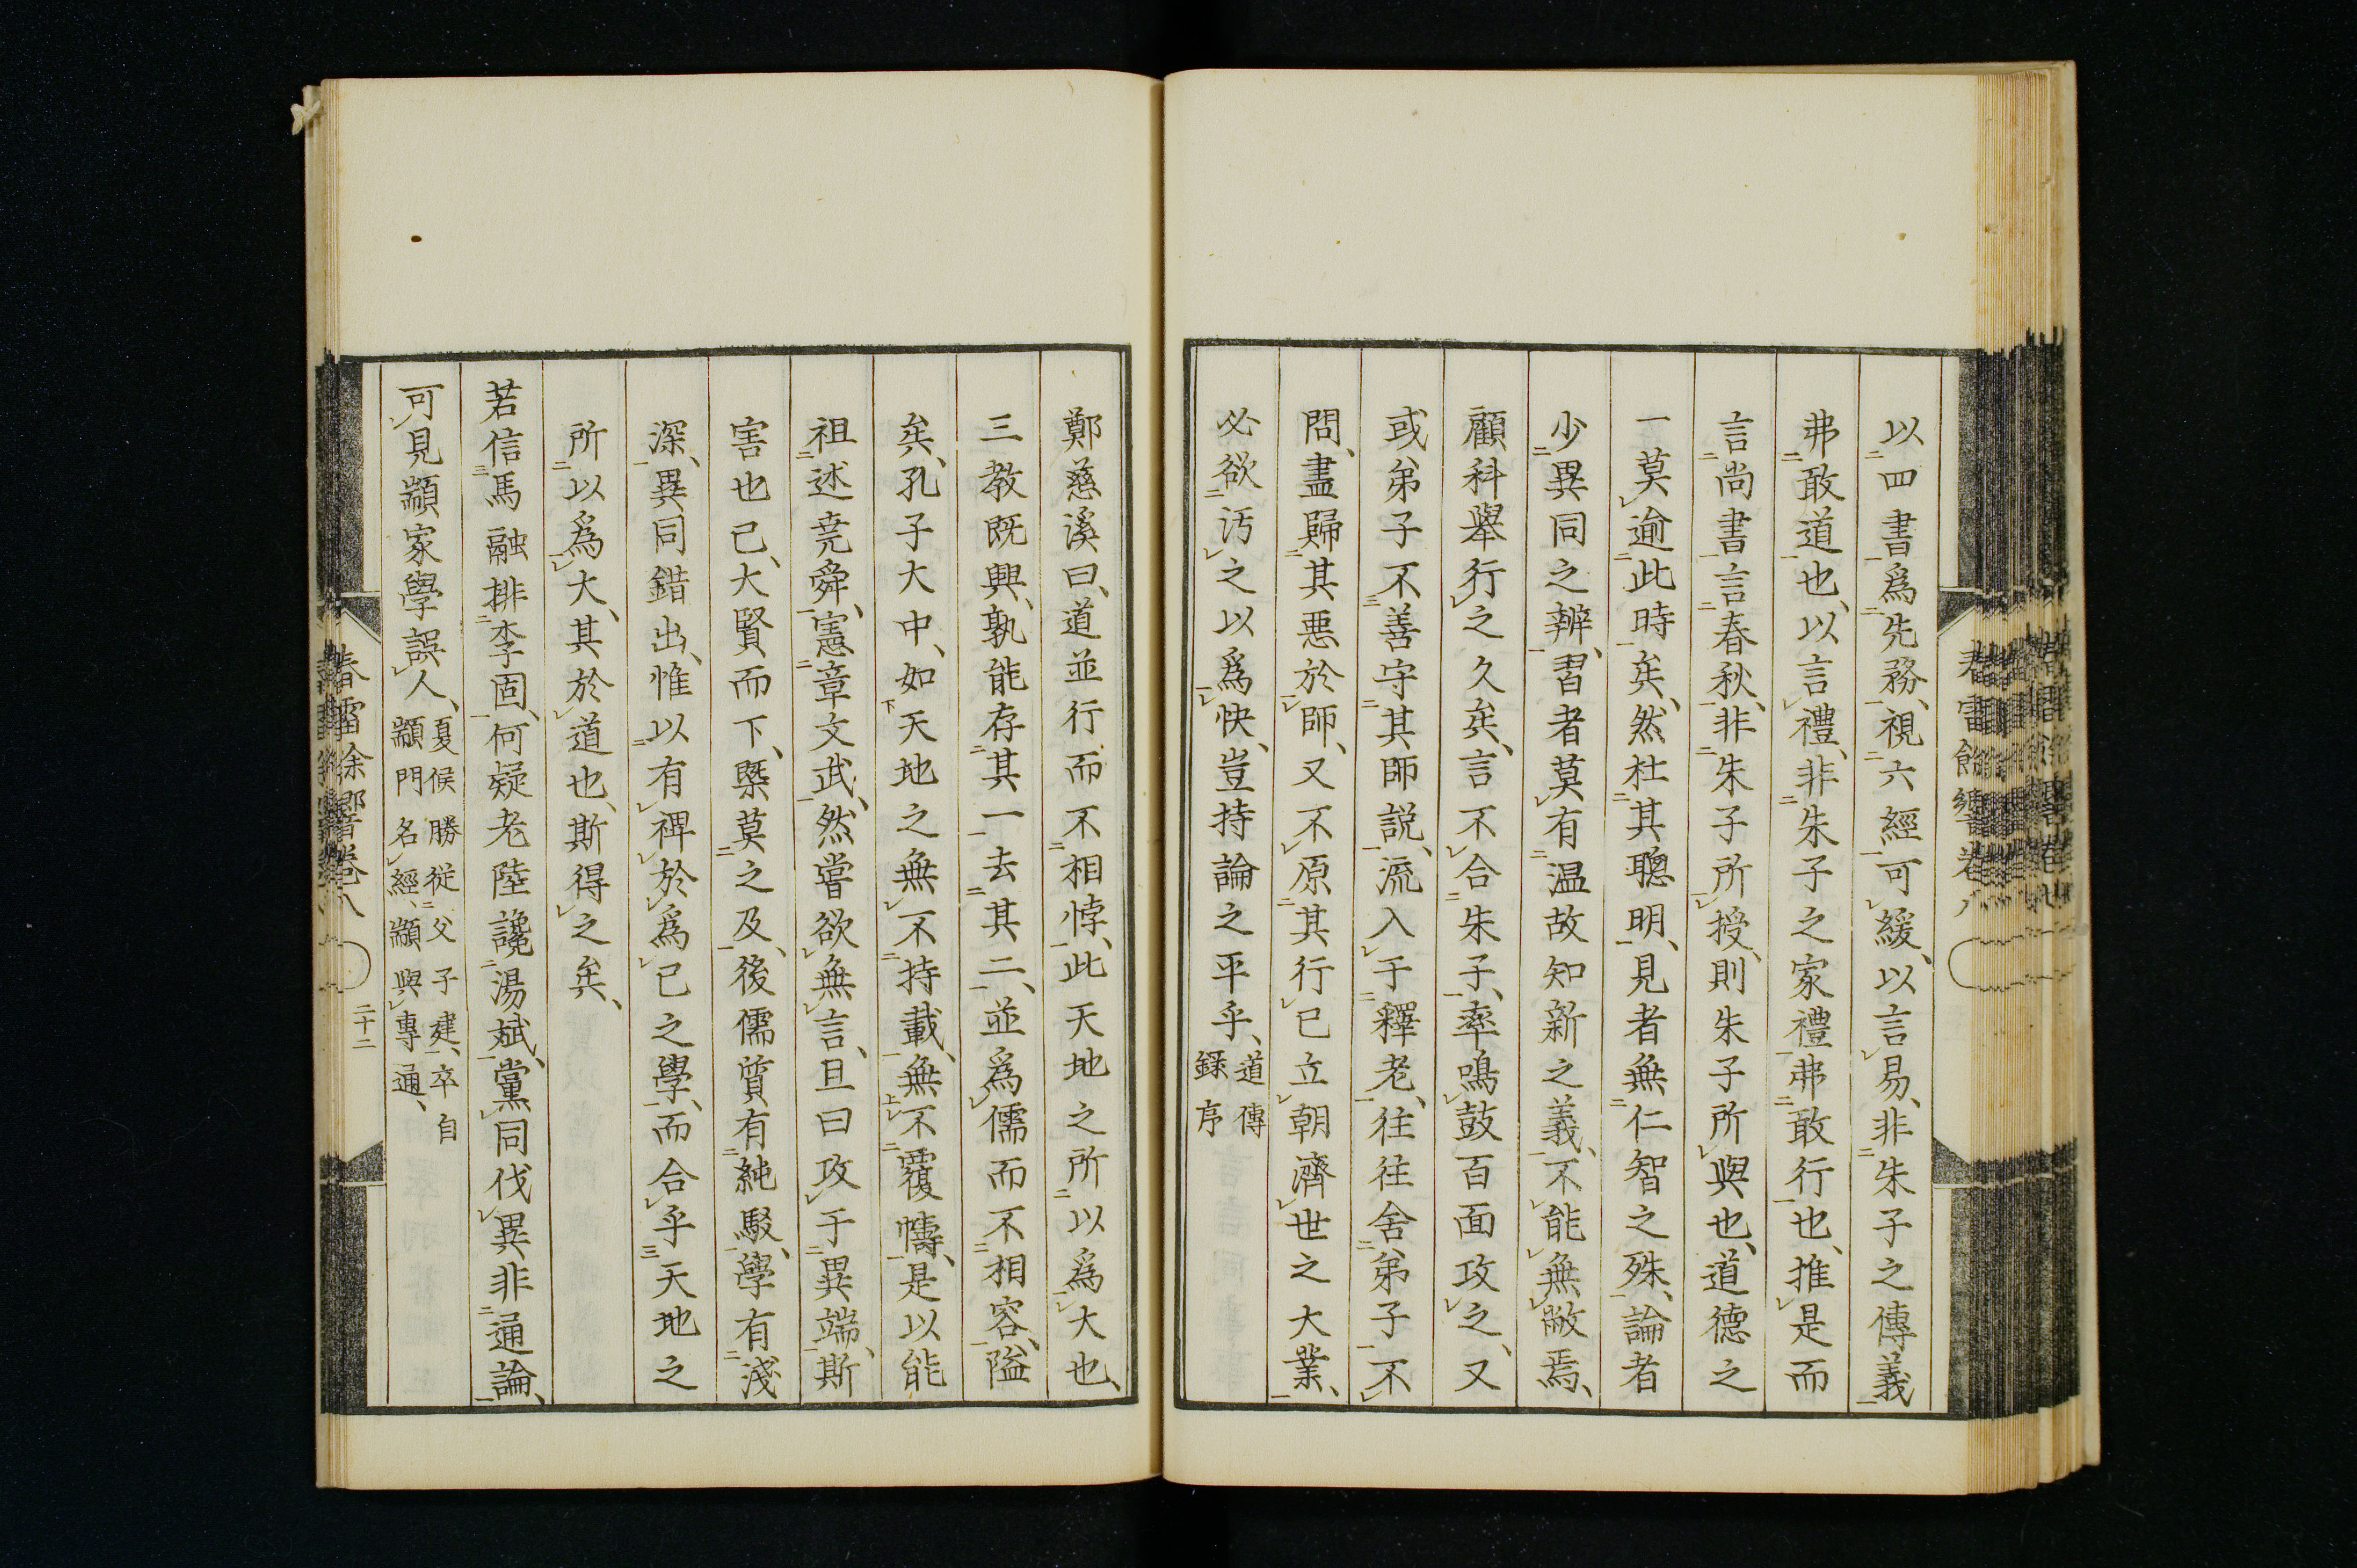 以四書爲先務、視六經可緩、以言易、非朱子之傳義
弗敢道也、以言禮、非朱子之家禮弗敢行也、推是而
言尚書言春秋、非朱子所授、則朱子所與也、道德之
一莫逾此時矣、然杜其聰明、見者無仁智之殊、論者
少異同之辨、習者莫有温故知新之義、不能無敝焉、
顧科舉行之久矣、言不合朱子、率鳴鼓百面攻之、又
或弟子不善守其師説、流入于釋老、往往舍弟子不
問、盡歸其惡於師、又不原其行已立朝濟世之大業、
必欲汚之以爲快、豈持論之平乎、道傳
録序
鄭慈溪曰、道並行而不相悖、此天地之所以爲大也、
三教既興、孰能存其一去其二、並爲儒而不相容、隘
矣、孔子大中、如天地之無不持載、無不覆幬、是以能
祖述尭舜、憲章文武、然嘗欲無言、且曰攻于異端、斯
害也已、大賢而下、槩莫之及、後儒質有純駁、學有淺
深、異同錯出、惟以有裨於爲已之學、而合乎天地之
所以爲大、其於道也、斯得之矣、
若信馬融排李固、何疑老陸讒湯斌、黨同伐異非通論、
可見顓家學誤人、夏侯勝従父子建、卒自
顓門名經、顓與專通、
春雷餘響卷八
二十二